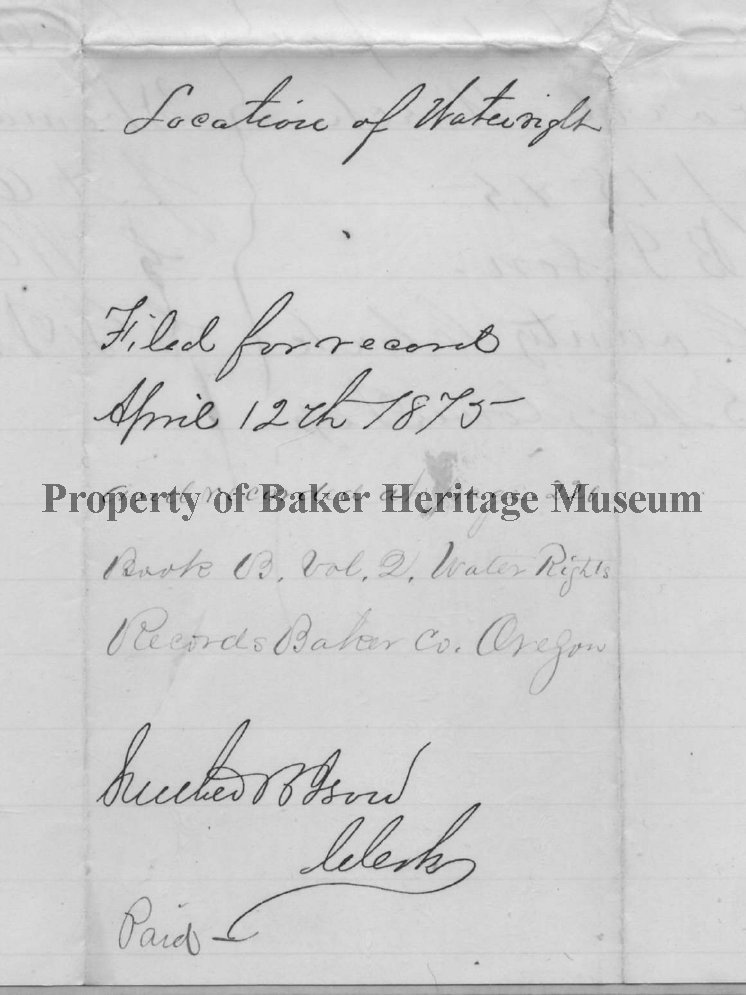 Location of Waterright
Filed for record
April 12th 1875
and recorded at page 226
Property of Baker Heritage Museum
Book B, Vol. 2, Water Rights
Records Baker Co. Oregon
B Ison
Clerk
Paid